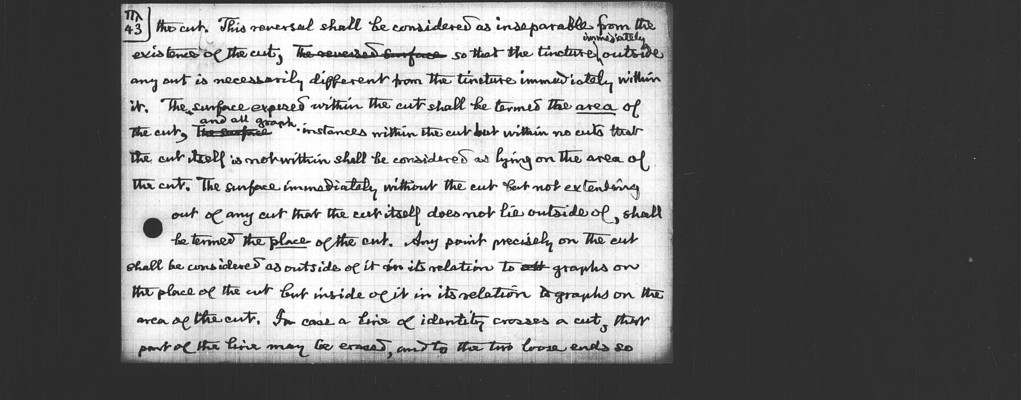 III
43
the cut. This reversal shall be considered as inseparable from the
existence of the cut, the reversed surface so that the tincture immediately outside
any cut is necessarily different from the tincture immediately within
it. The surface exposed within the cut shall be termed the area of
the cut, the surface and all graph-instances within the cut but within no cuts that
the cut itself is not within shall be considered as lying on the area of
the cut. The surface immediately without the cut but not extending
out of any cut that the cut itself does not lie outside of, shall
be termed the place of the cut. Any point precisely on the cut
shall be considered as outside of it in its relation to graphs on
the place of the cut but inside of it in its relation to graphs on the
area of the cut. In case a line of identity crosses a cut, that
part of the line may be erased, and to the two loose ends so